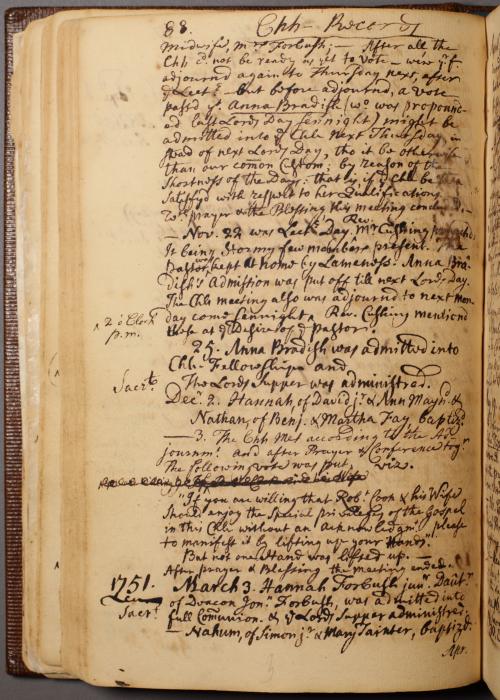 88. Chh - Records
Midwife, Mrs Forbush; — After all the
Chh cd. not be ready as yet to vote — were yf.
adjournd again to Thursday next, after
ye Lectr. — but before adjournd, a vote
passd yt. Anna Bradish (wo. was propound-
ed last Lords Day sennight) might be
admitted into ye Chh next Thursday
stead of next Lords Day, tho it be otherwise
than our comon Custom; by reason of the
Shortness of the Day; that is if ye Chh be then
Satisfyd with respect to her Qualifications.
To prayer & the Blessing this meeting concluded.
— Nov. 22 was Lectr. Day. Rev. Mr Cushing preached.
It being Stormy few members present. The
Pastor was kept at home by Lameness. Anna Bra-
dish's Admission was put off till next Lords Day.
The Chh meeting also was adjournd to next Mon
day come sennight ^ Rev. Cushing mentiond
^ 2 o'Clock
p.m.
those at ye Desire of ye Pastor.
25. Anna Bradish was admitted into
Chh-Fellowship and
Sacrt. The Lords Supper was administred.
Decr. 2. Hannah, of David jr. & Ann Mayn. &
Nathan, of Benj. & Martha Fay baptizd.
— 3. The Chh met according to the Ad-
journmt. and after Prayer & Conference togr.
the following vote was put, viz.
"If you are willing that Robt. Cook & his Wife
should enjoy the special priviledges of the Gospel
in this Chh without an Acknowledgmt. please
to manifest it by lifting up your Hands".
But not one Hand was lifted up. —
After prayer & Blessing the meeting ended.
1751. March 3. Hannah Forbush junr. Dautr.
of Deacon Jonn. Forbush, was admitted into
Sacrt. full Communion. & ye Lords Supper administred.
— Nahum, of Simon jr. & Mary Tainter, baptizd.
Apr.